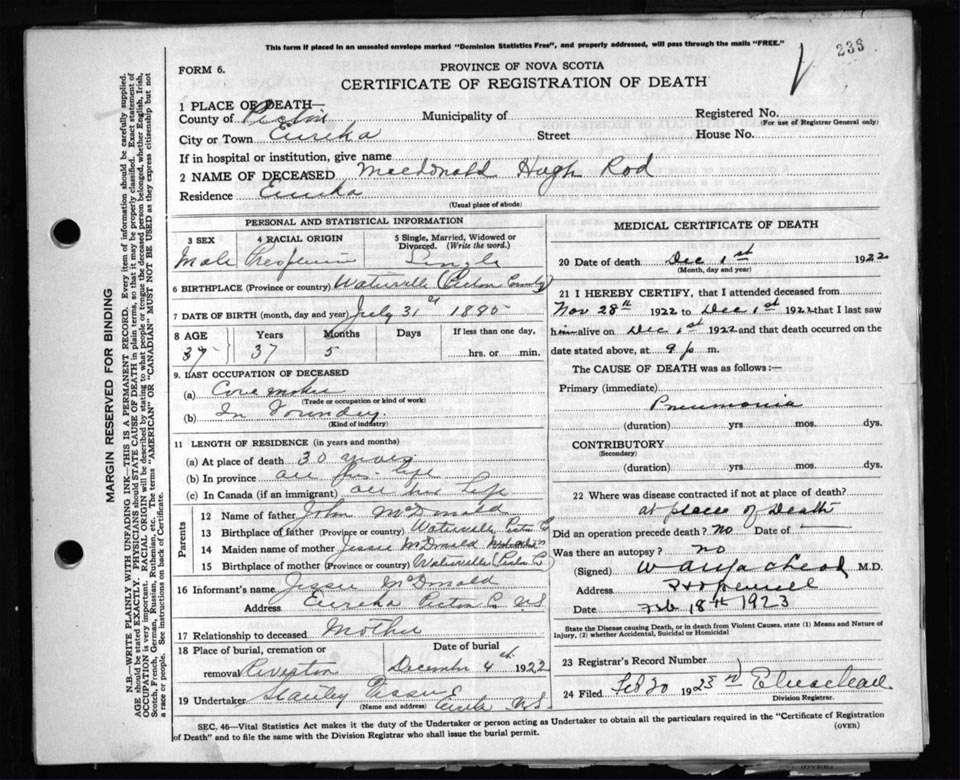 This form if placed in an unsealed envelope marked "Dominion Statistics Free", and properly addressed, will pass through the mails "FREE."
236
FORM 6.
PROVINCE OF NOVA SCOTIA
CERTIFICATE OF REGISTRATION OF DEATH
1 PLACE OF DEATH—
County of Pictou Municipality of Registered No.
(For use of Registrar General only)
City or Town Eureka Street House No.
If in hospital or institution, give name
2 NAME OF DECEASED Macdonald Hugh Rod
Residence Eureka
(Usual place of abode)
PERSONAL AND STATISTICAL INFORMATION
3 SEX 4 RACIAL ORIGIN 5 Single, Married, Widowed or Divorced. (Write the word.)
Male Single
6 BIRTHPLACE (Province or country) Waterville (Pictou County)
7 DATE OF BIRTH (month, day and year) July 31st 1885
8 AGE Years Months Days If less than one day,
37 37 5 hrs. or min.
9. LAST OCCUPATION OF DECEASED
(a) Core maker
(Trade or occupation or kind of work)
(b) In Foundry.
(Kind of industry)
11 LENGTH OF RESIDENCE (in years and months)
(a) At place of death 30 years
(b) In province all his life
(c) In Canada (if an immigrant) all his life
Parents
12 Name of father John McDonald
13 Birthplace of father (Province or country) Waterville Pictou Co
14 Maiden name of mother Jessie McDonald
15 Birthplace of mother (Province or country) Waterville (Pictou Co
16 Informant's name Jessie McDonald
Address Eureka Pictou Co. N.S
17 Relationship to deceased Mother
18 Place of burial, cremation or removal Date of burial
Riverton December 4th 1922
19 Undertaker Stanley
(Name and address) Eureka N.S
MEDICAL CERTIFICATE OF DEATH
20 Date of death Dec 1st 1922
(Month, day and year)
21 I HEREBY CERTIFY, that I attended deceased from
Nov 28th 1922 to Dec 1st 1922 that I last saw
him alive on Dec 1st 1922 and that death occurred on the
date stated above, at 9 p m.
The CAUSE OF DEATH was as follows:—
Primary (immediate)
Pneumonia
(duration) yrs. mos. dys.
CONTRIBUTORY
(Secondary)
(duration) yrs. mos. dys.
22 Where was disease contracted if not at place of death?
at place of Death
Did an operation precede death? No Date of
Was there an autopsy? no
(Signed) M.D.
Address Hopewell
Date Feb 18th 1923
State the Disease causing Death, or in death from Violent Causes, state (1) Means and Nature of Injury, (2) whether Accidental, Suicidal or Homicidal
23 Registrar's Record Number
24 Filed Feb 20 1923
Division Registrar.
SEC. 46—Vital Statistics Act makes it the duty of the Undertaker or person acting as Undertaker to obtain all the particulars required in the "Certificate of Registration
of Death" and to file the same with the Division Registrar who shall issue the burial permit.
(OVER)
MARGIN RESERVED FOR BINDING
N.B.—WRITE PLAINLY WITH UNFADING INK—THIS IS A PERMANENT RECORD. Every item of information should be carefully supplied.
AGE should be stated EXACTLY. PHYSICIANS should STATE CAUSE OF DEATH in plain terms, so that it may be properly classified. Exact statement of
OCCUPATION is very important. RACIAL ORIGIN will be described by stating to what people or tongue the deceased person belonged, whether English, Irish,
Scotch, French, German, Russian, Ruthenian, etc. The terms "AMERICAN" or "CANADIAN" MUST NOT BE USED as they express citizenship but not
a race or people. See instructions on back of Certificate.